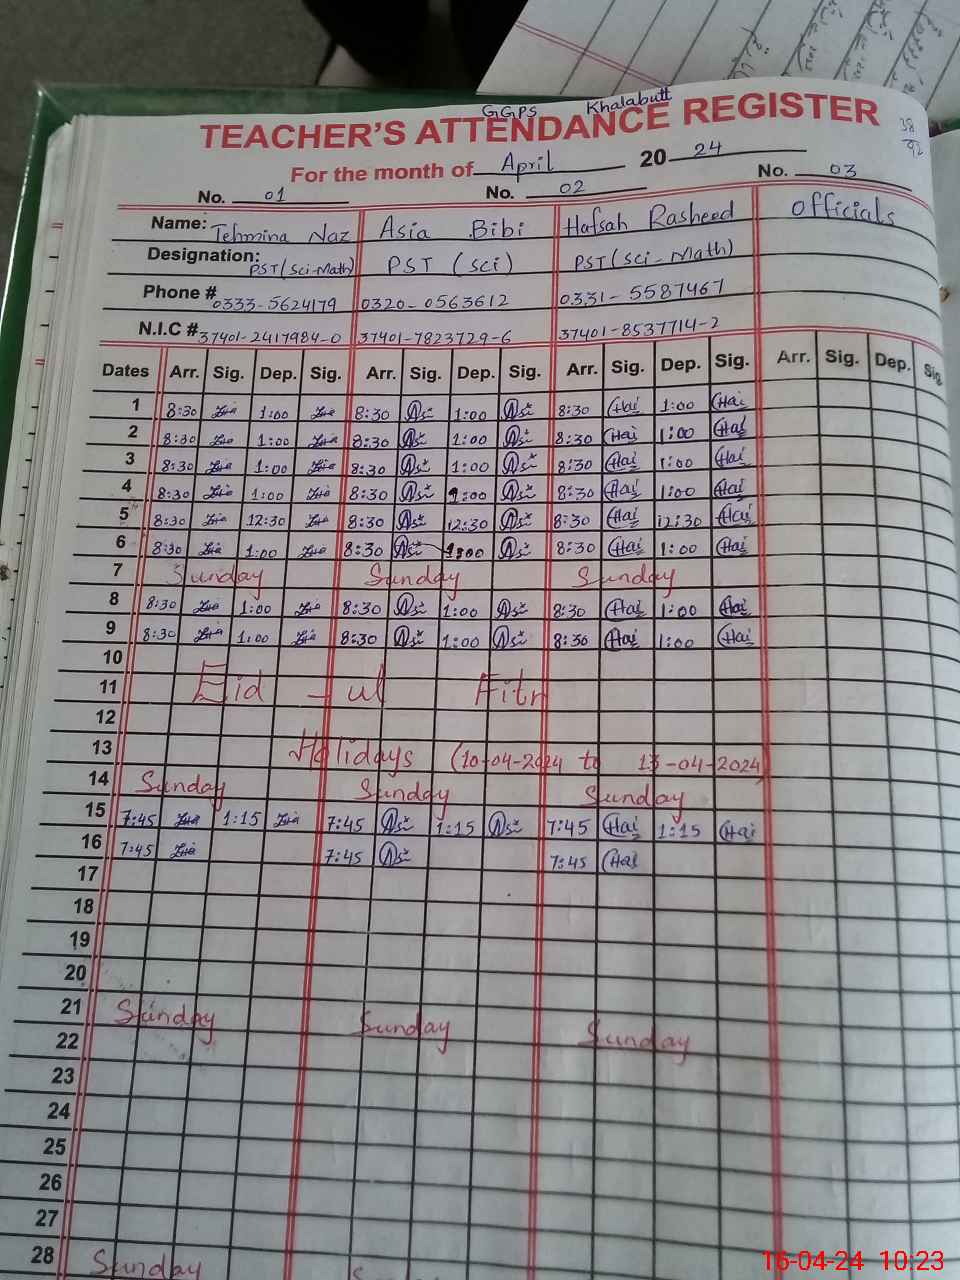 GGPS Khalabutt
TEACHER'S ATTENDANCE REGISTER
38
92
For the month of April 2024
No. 01 No. 02 No. 03
Name: Tehmina Naz Asia Bibi Hafsah Rasheed Officials
Designation: PST (Sci-Math) PST (Sci) PST (Sci-Math)
Phone # 0333-5624179 0320-0563612 0331-5587467
N.I.C # 37401-2417984-0 37401-7823729-6 37401-8537714-2
Dates Arr. Sig. Dep. Sig. Arr. Sig. Dep. Sig. Arr. Sig. Dep. Sig. Arr. Sig. Dep. Sig.
1 8:30 1:00 8:30 1:00 8:30 Hai 1:00 Hai
2 8:30 1:00 8:30 1:00 8:30 Hai 1:00 Hai
3 8:30 1:00 8:30 1:00 8:30 Hai 1:00 Hai
4 8:30 1:00 8:30 1:00 8:30 Hai 1:00 Hai
5 8:30 12:30 8:30 12:30 8:30 Hai 12:30 Hai
6 8:30 1:00 8:30 1:00 8:30 Hai 1:00 Hai
7 Sunday Sunday Sunday
8 8:30 1:00 8:30 1:00 8:30 Hai 1:00 Hai
9 8:30 1:00 8:30 1:00 8:30 Hai 1:00 Hai
10
11 Eid - ul Fitr
12
13 Holidays (10-04-2024 to 13-04-2024)
14 Sunday Sunday Sunday
15 7:45 1:15 7:45 1:15 7:45 Hai 1:15 Hai
16 7:45 7:45 7:45 Hai
17
18
19
20
21 Sunday Sunday Sunday
22
23
24
25
26
27
28 Sunday
16-04-24 10:23